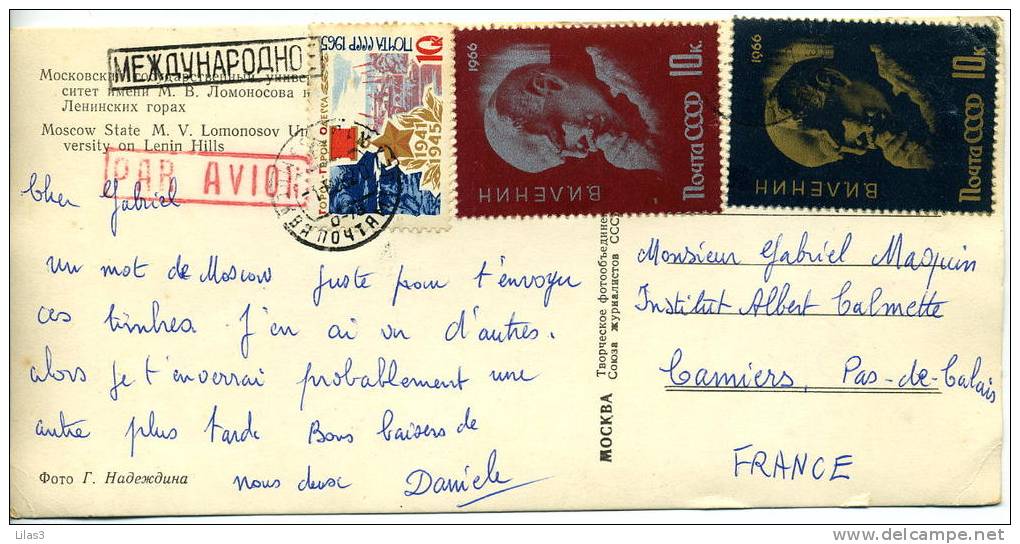 МЕЖДУНАРОДНО
Московский государственный универ-
ситет имени М. В. Ломоносова н
Ленинских горах
Moscow State M. V. Lomonosov Un
versity on Lenin Hills
PAR AVION
Cher Gabriel
Un mot de Moscow juste pour t'envoyer
ces timbres. J'en ai vu d'autres.
alors je t'enverrai probablement une
autre plus tard. Bons baisers de
nous deux Daniele
Фото Г. Надеждина
ПОЧТА СССР 1965
10К
ГОРОД ГЕРОЙ ОДЕССА
1941
1945
1966
10к.
Почта СССР
В.И.ЛЕНИН
1966
10к
Почта СССР
В.И.ЛЕНИН
МОСКВА Творческое фотообъединен
Союза журналистов СССР
Monsieur Gabriel Maquin
Institut Albert Calmette
Camiers, Pas-de-Calais
FRANCE
Lilas3
www.delcampe.net